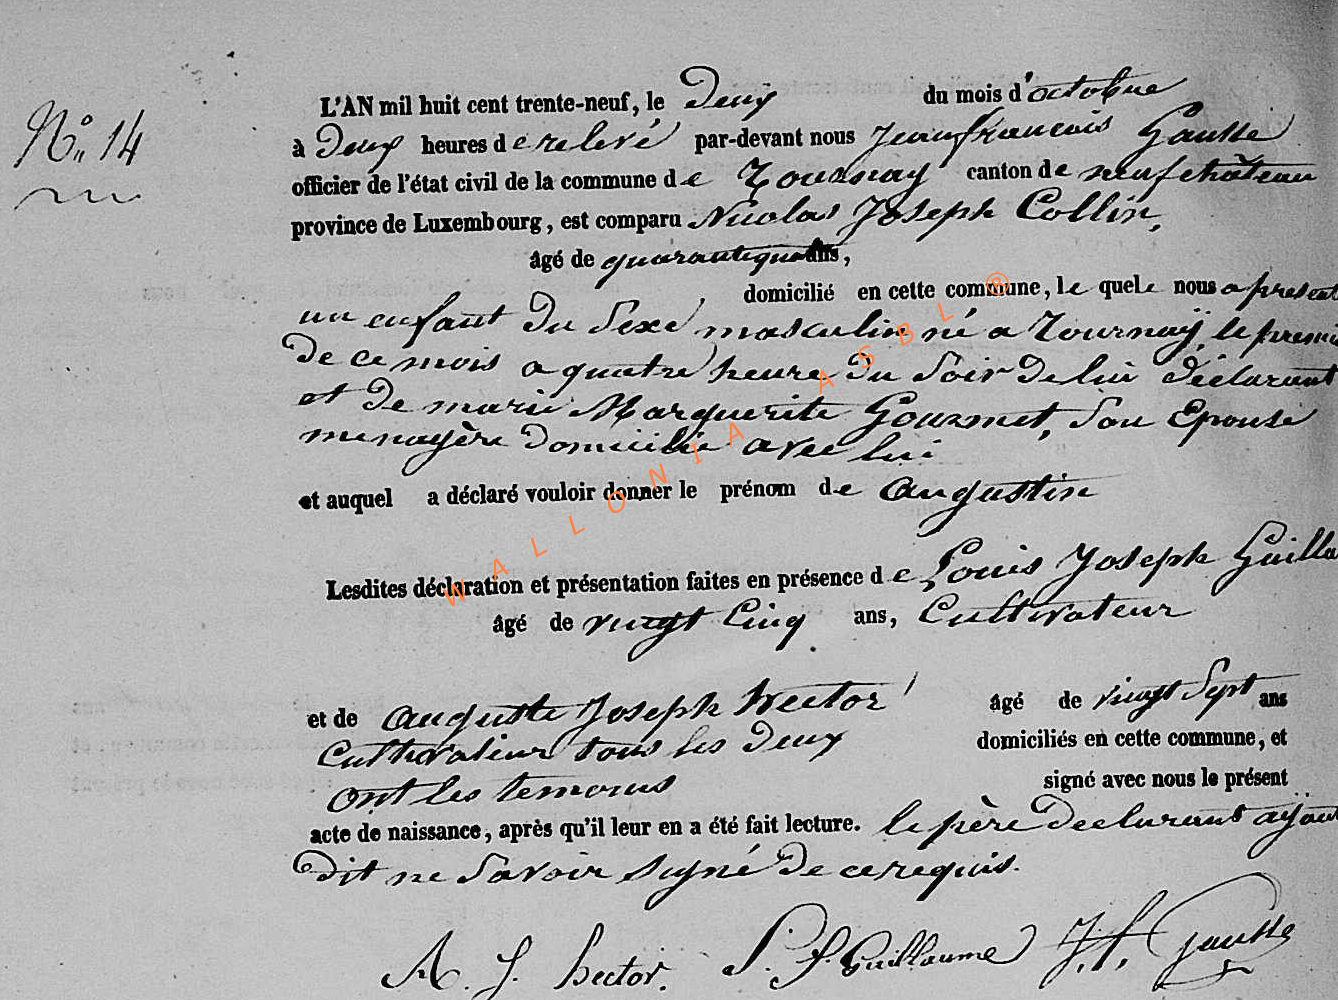 N° 14
L'AN mil huit cent trente-neuf, le Deux du mois d'octobre
à Deux heures de relevé par-devant nous Jean françois Gausse
officier de l'état civil de la commune de Tournay canton de neufchâteau
province de Luxembourg, est comparu Nicolas Joseph Collin,
âgé de ans,
domicilié en cette commune, le quel nous a presenté
un enfant du Sexe masculin né a Tournaÿ, le premier
de ce mois a quatre heure du Soir de lui déclarant
et de marie Marguerite Gourmet, Son Epouse
menagère domicilié avec lui
et auquel a déclaré vouloir donner le prénom de augustin
Lesdites déclaration et présentation faites en présence de Louis Joseph
âgé de vingt Cinq ans, Cultivateur
et de auguste Joseph hector âgé de vingt Sept ans
Cultivateur tous les Deux domiciliés en cette commune, et
ont les temoins signé avec nous le présent
acte de naissance, après qu'il leur en a été fait lecture. le père Declarant ayant
dit ne Savoir Signé de ce requis.
A. J. hector. L. J. Guillaume J. f. Gausse
WALLONIA ASBL ®